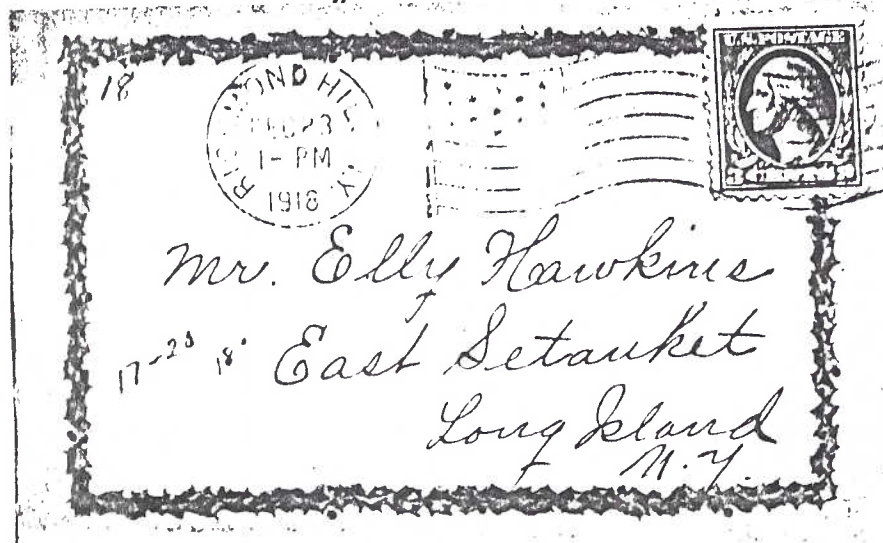 18
RICHMOND HILL N.Y.
DEC 23
1- PM
1918
U.S. POSTAGE
Mr. Elly Hawkins
17-23 18
East Setauket
Long Island
N.Y.